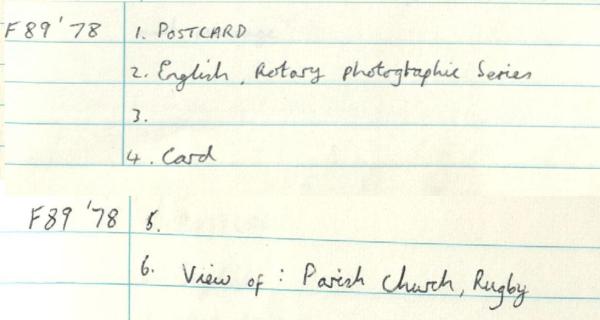 F89 '78 1. POSTCARD
2. English, Rotary photographic Series
3.
4. Card
F89 '78 5.
6. View of : Parish Church, Rugby